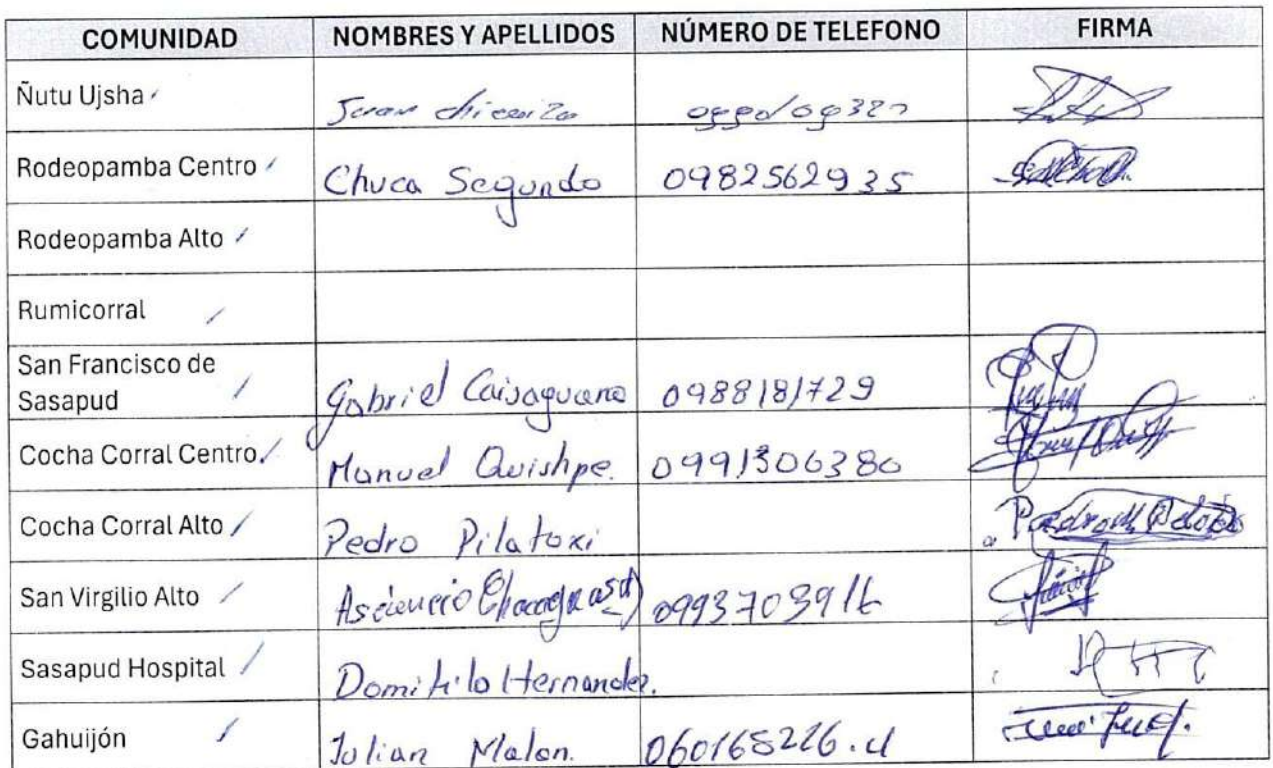 COMUNIDAD NOMBRES Y APELLIDOS NÚMERO DE TELEFONO FIRMA
Ñutu Ujsha Juan
Rodeopamba Centro Chuca Segundo 0982562935
Rodeopamba Alto
Rumicorral
San Francisco de
Sasapud Gabriel Caisaguano 0988181729
Cocha Corral Centro Manuel Quishpe. 0991306380
Cocha Corral Alto Pedro Pilatoxi
San Virgilio Alto Asciencio 0993703916
Sasapud Hospital Domitilo Hernandez.
Gahuijón Julian Malan. 060165226.4